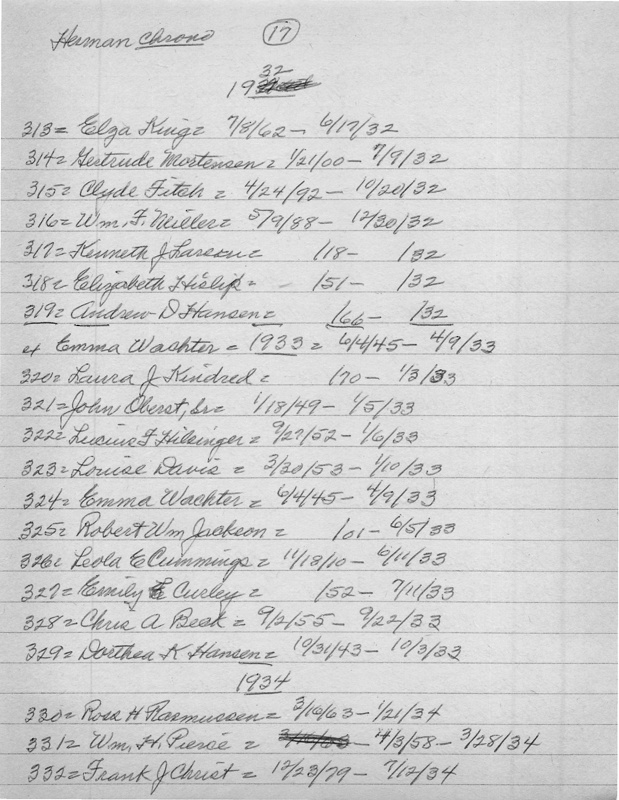 Herman Chrono 17
32
19
313= Elza King= 7/8/62- 6/17/32
314= Gertrude Mortensen= 1/21/00- 7/9/32
315= Clyde Fitch= 4/24/92- 10/20/32
316= Wm. F. Neiller= 5/9/88- 12/30/32
317= Kenneth J Larson= /18- /32
318= Elizabeth Hislip= - /51- /32
319= Andrew D Hansen= /66- /32
ex Emma Wachter= 1933= 6/4/45- 4/9/33
320= Laura J Kindred= /70- 1/3/33
321= John Oberst, Sr= 1/18/49- 1/5/33
322= Lucius F Hilsinger= 9/27/52- 1/6/33
323= Louise Davis= 3/20/53- 1/10/33
324= Emma Wachter= 6/4/45- 4/9/33
325= Robert Wm Jackson= /01- 6/5/33
326= Leola E Cummings= 11/18/10- 6/11/33
327= Emily Curley= /52- 7/11/33
328= Chris A Beck= 9/2/55- 9/22/33
329= Dorthea K Hansen= 10/31/43- 10/3/33
1934
330= Ross H Rasmussen= 3/16/63- 1/21/34
331= Wm. H. Pierce= 4/3/58- 3/28/34
332= Frank J Christ= 12/23/79- 7/12/34